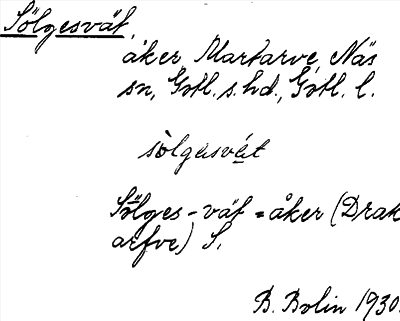 Sölgesvät,
åker Martarve, Näs
sn, Gotl. s. hd., Gotl. l.
sòlgasvét
Sölges-vät = åker (Drak
arfve) S.
B. Bolin 1930.